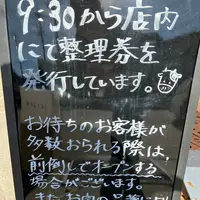 9:30から店内
にて整理券を
発行しています。
お待ちのお客様が
多数おられる際は、
前倒しでオープンする
場合がございます。
またお肉の品薄により